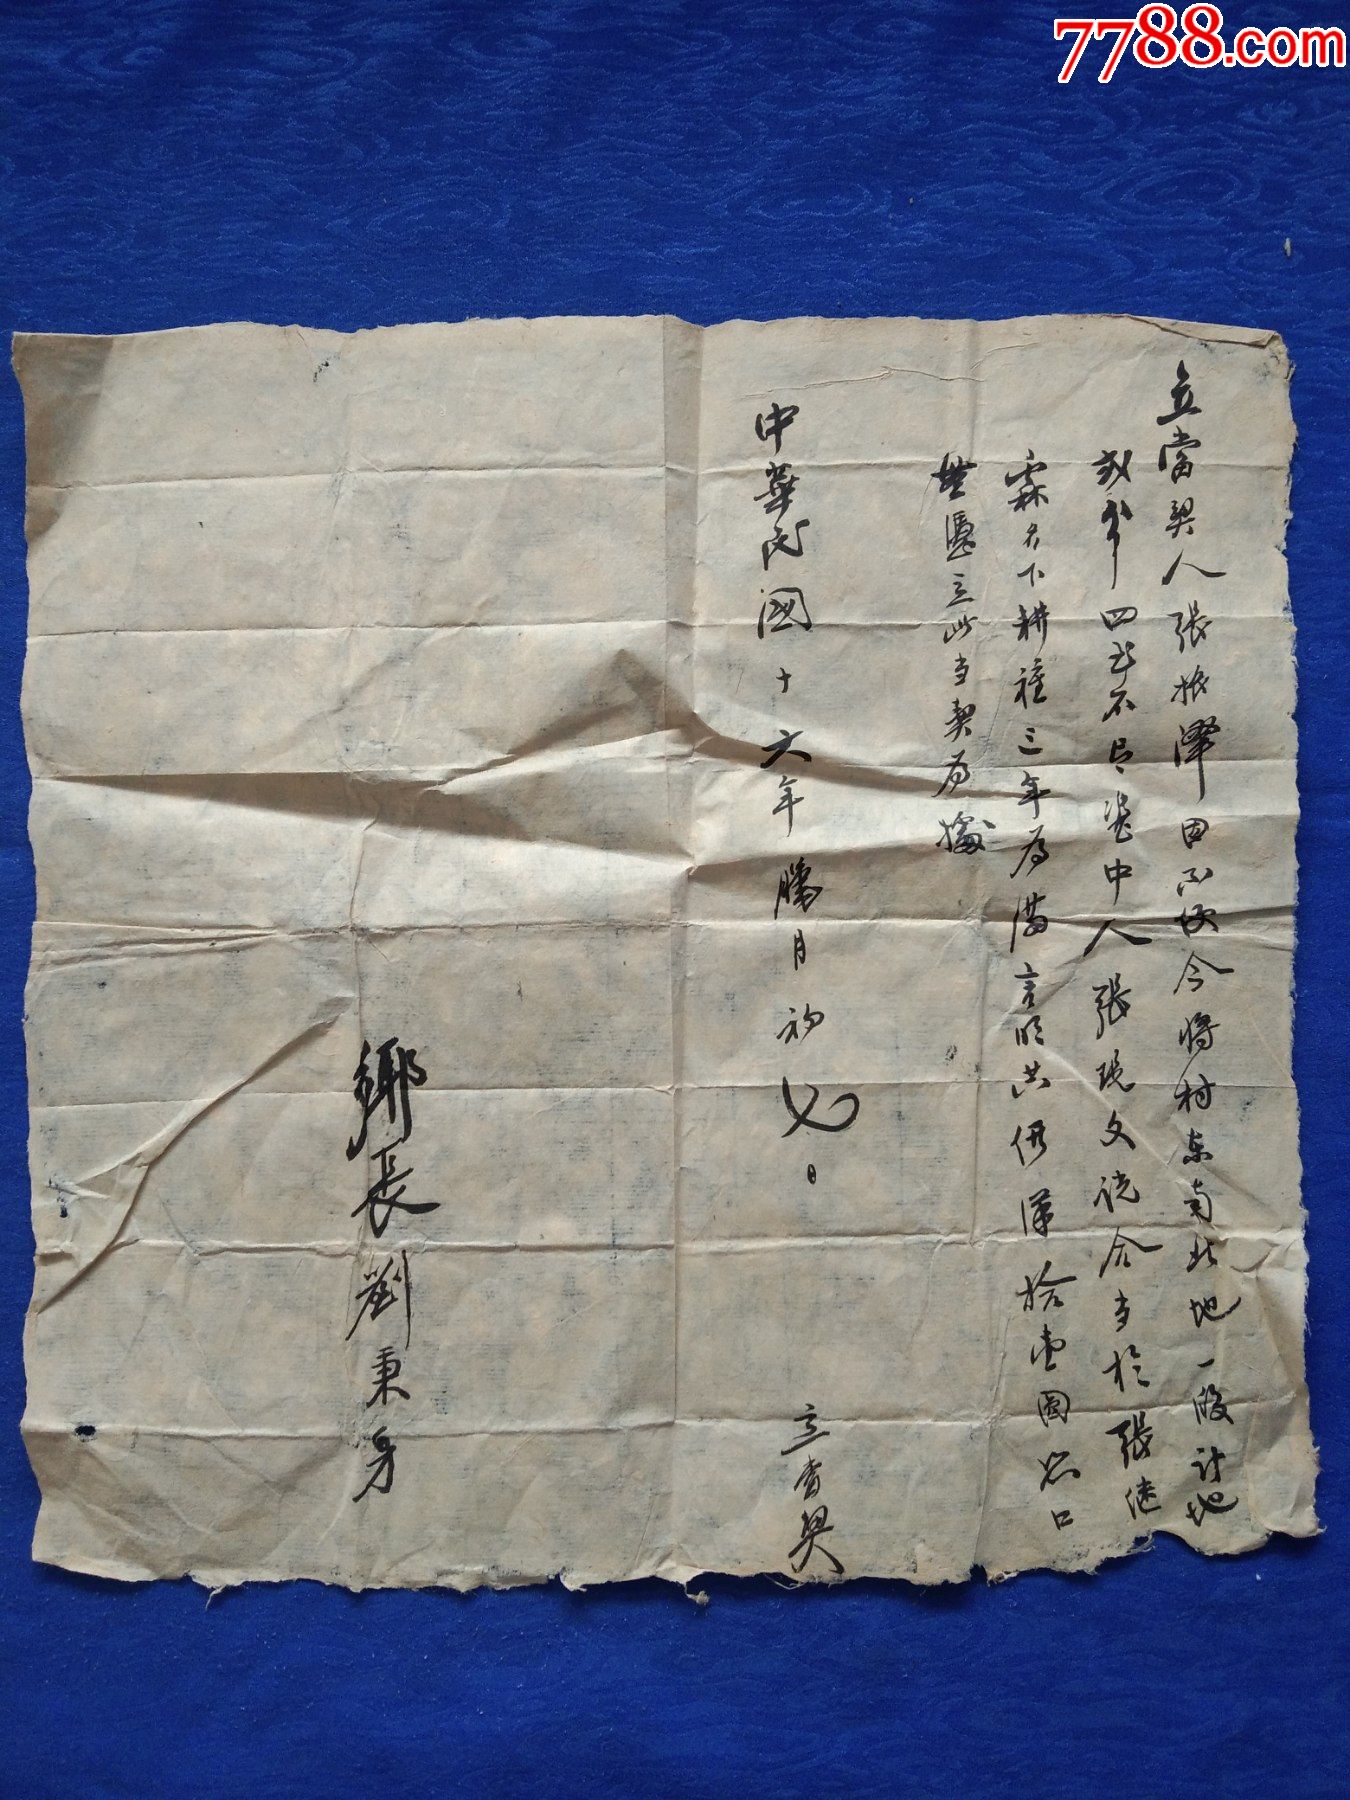 7788.com
立當契人張振澤因不便今將村東南北地一段計地
弍畝四至不尽憑中人張現文說合当於張继
霖名下耕種三年為滿言明共價洋拾壹圓恐口
無憑立此当契为據
中華民國十六年腊月初七日
立當契
鄉長劉秉身